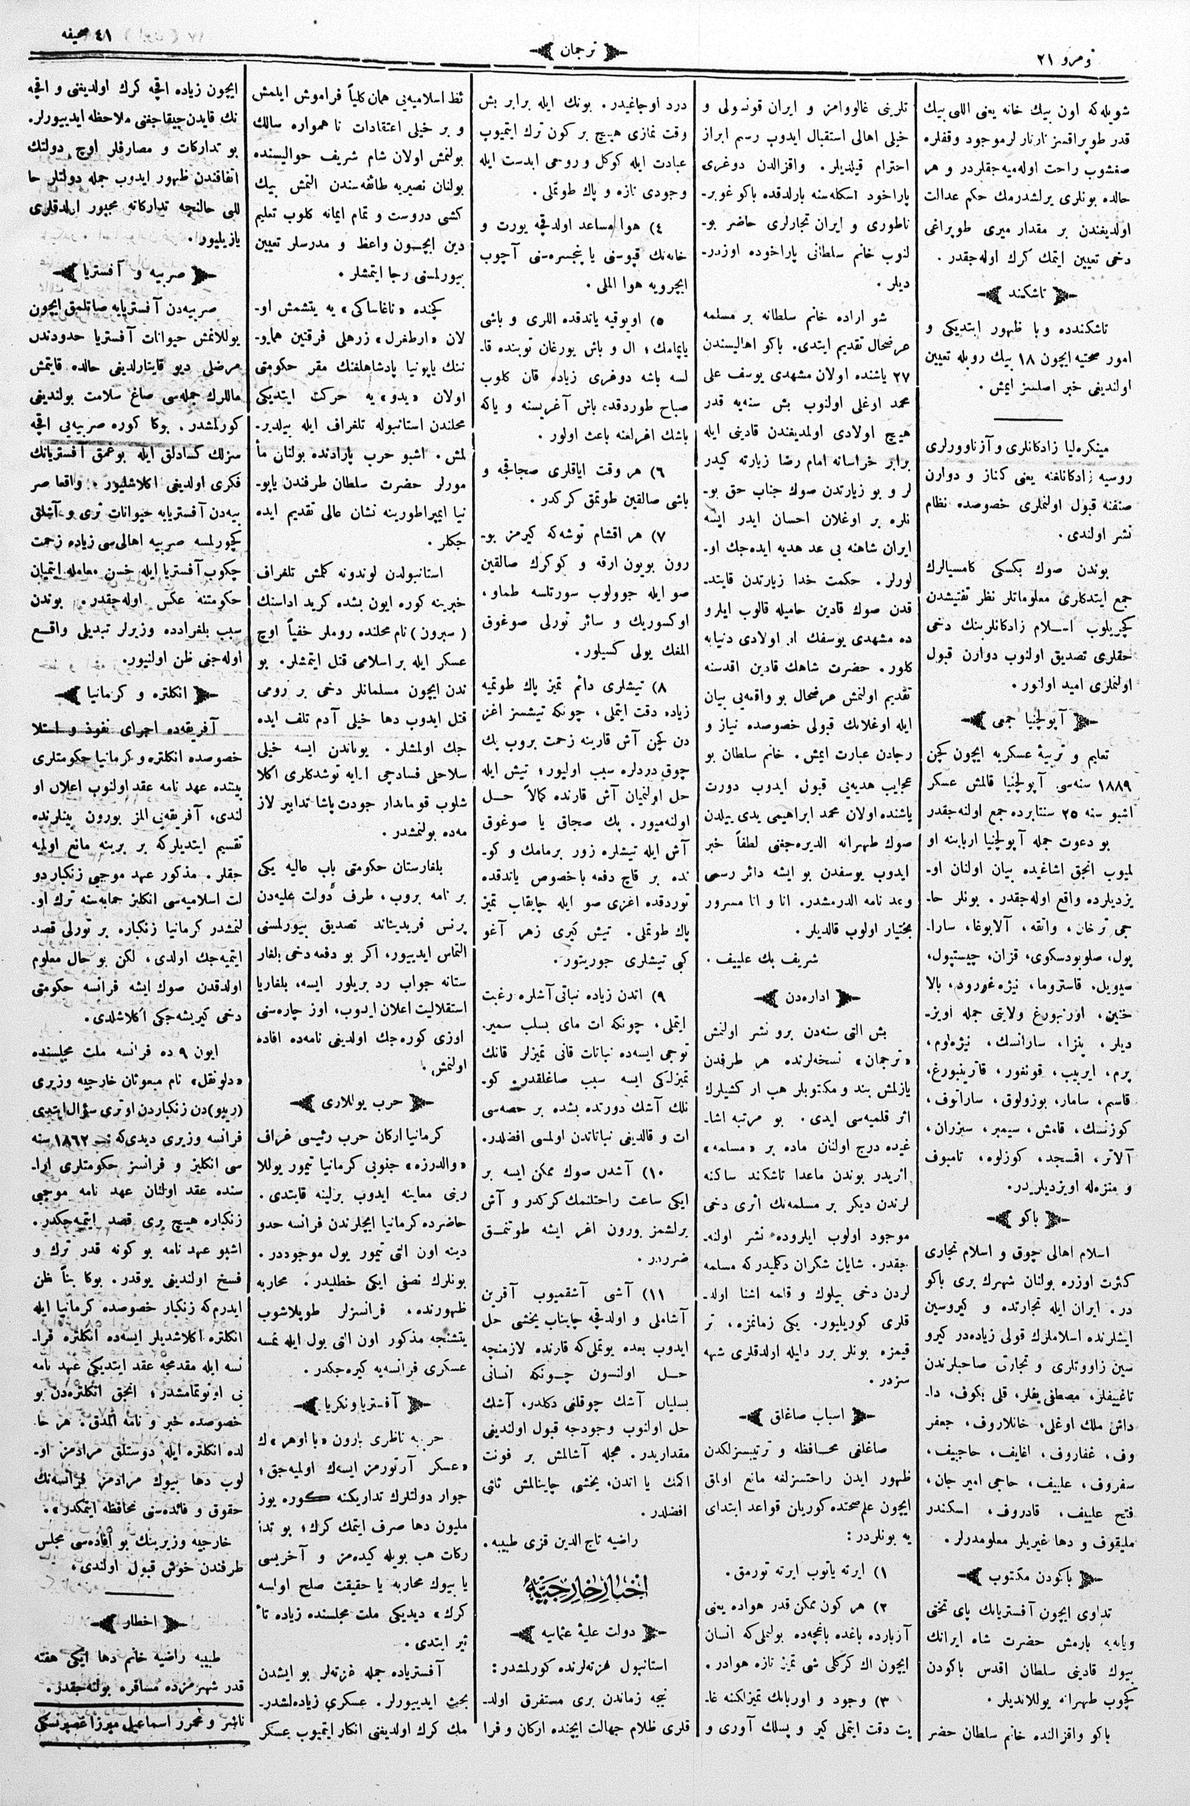 نومرو ٢١
ترجمان
٤١ صحيفه
شويله‌كه اون بيك خانه يعنی اللی بيك
قدر طوپراقسز تارتار لر موجود وقفلره
صغشوب راحت اوله‌ميه‌جقلردر و هر
حالده بونلری يرلشدرمك حكم عدالت
اولديغندن بر مقدار ميری طوپراغی
دخی تعيين ايتمك كرك اوله‌جقدر.
تاشكند
تاشكندده وبا ظهور ايتديكی و
امور صحتيه ايچون ١٨ بيك روبله تعيين
اولنديغی خبر اصلسز ايمش.
مينكره‌ليا زادكانلری و آزناوورلری
روسيه زادكانلغنه يعنی كناز و دوارن
صنفنه قبول اولنملری خصوصده نظام
نشر اولندی.
بوندن صوك بكسكی كاميسيالرك
جمع ايتدكلری معلوماتلر نظر تفتيشدن
كچريلوب اسلام زادكانلرينك دخی
حقلری تصديق اولنوب دوارن قبول
اولنملری اميد اولنور.
آپولچنيا جمی
تعليم و تربيهٔ عسكريه ايچون كچن
١٨٨٩ سنه‌سی آپولچنيا قالمش عسكر
اشبو سنه ٢٥ سنتابرده جمع اولنه‌جقدر
بو دعوت جمله آپولچنيا اربابنه او
لميوب انجق اشاغيده بيان اولنان او-
يزديلرده واقع اوله‌جقدر. بونلر حا-
جی ترخان، واتقه، آلابوغا، سارا-
پول، صلوبودسكوی، قزان، چيستپول،
سيويل، قاستروما، نيژه‌غورود، بالا
خنين، اورنبورغ ولايتی جمله اويز-
ديلر، پنزا، سارانسك، نيژه‌لوم،
پرم، ايربيت، قونغور، قاترينبورغ،
قاسم، سامار، بوزولوق، ساراتوف،
كوزنسك، قامش، سيمبر، سيزران،
آلاتر، اقسجد، كوزلوه، تامبوف
و منزه‌له اويزديلريدر.
باكو
اسلام اهالی چوق و اسلام تجاری
كثرت اوزره بولنان شهرك بری باكو
در. ايران ايله تجارتده و كيروسين
ايشلرنده اسلاملرك قولی زياده‌در كيرو
سين زاووتلری و تجارتق صاحبلرندن
تاغييفلر، مصطفی‌يفلر، قلی بكوف، دا-
داش ملك اوغلی، خانلاروف، جعفر
وف، غفاروف، اغايف، حاجييف،
سفروف، علييف، حاجی امير جان،
فتح علييف، قادروف، اسكندر
مليقوف و دها غيريلر معلومدرلر.
باكودن مكتوب
تداوی ايچون آفسترياىك پای تختی
ويانه‌يه بارمش حضرت شاه ايرانك
بيوك قادينی سلطان اقدس باكودن
كچوب طهرانه يوللانديلر.
باكو واقزالنده خانم سلطان حضر
تلرينی غالووامز و ايران قونسولی و
خيلی اهالی استقبال ايدوب رسم ابراز
احترام قيلنديلر. واقزالدن دوغری
پاراخود اسكله‌سنه بارلدقده باكو غوبر-
ناطوری و ايران تجارلری حاضر بو-
لنوب خانم سلطانی پاراخوده اوزدر-
ديلر.
شو اراده خانم سلطانه بر مسلمه
عرضحال تقديم ايتدی. باكو اهاليسندن
٢٧ ياشنده اولان مشهدی يوسف علی
محمد اوغلی اولنوب بش سنه‌يه قدر
هيچ اولادی اولمديغندن قادينی ايله
برابر خراسانه امام رضا زيارته كيدر
لر و بو زيارتدن صوك جناب حق بو-
نلره بر اوغلان احسان ايدر ايسه
ايران شاهنه بی عد هديه ايده‌جك او-
لورلر. حكمت خدا زيارتدن قايتد-
قدن صوك قادين حامله قالوب ايلرو
ده مشهدی يوسفك بر اولادی دنيايه
كلور. حضرت شاهك قادين اقدسنه
تقديم اولنمش عرضحال بو واقعه‌یی بيان
ايله اوغلانك قبولی خصوصده نياز و
رجادن عبارت ايمش. خانم سلطان بو
عجايب هديه‌یی قبول ايدوب دورت
ياشنده اولان محمد ابراهيمی يدی ييلدن
صوك طهرانه الديره‌جغنی لطفاً خبر
ايدوب يوسفدن بو ايشه دائر رسمی
وعد نامه الدرمشدر. انا و اتا مسرور
بختيار اولوب قالديلر.
شريف بك علييف.
اداره‌دن
بش التی سنه‌دن برو نشر اولنمش
«ترجمان» نسخه‌لرنده هر طرفدن
يازلمش بند و مكتوبلر هپ ار كشيلرك
اثر قلميه‌سی ايدی. بو مرتبه اشا-
غيده درج اولنان ماده بر «مسلمه»
اثريدر بوندن ماعدا تاشكند ساكنه
لرندن ديكر بر مسلمه‌نك اثری دخی
موجود اولوب ايلروده نشر اولنه-
جقدر. شايان شكران دكلميدركه مسلمه
لردن دخی بيلوك و قلمه اشنا اولد-
قلری كوريليور. يكی زمانمزه، تر
قيمزه بونلر برر دليله اولدقلری شبهه
سزدر.
اسباب صاغلق
صاغلغی محافظه و ترتيبسزلكدن
ظهور ايدن راحتسزلغه مانع اولمق
ايچون علم صحتده كوريلن قواعد ابتدای
يه بونلردر:
١) ايرته ياتوب ايرته تورمق.
٢) هر كون ممكن قدر هواده يعنی
آزبارده باغده باغچه‌ده بولنملی‌كه انسان
ايچون اك كركلی شی تميز تازه هوادر.
٣) وجود و اوربانك تميزلكنه غا-
يت دقت ايتملی كير و پسلك آوری و
درد اوجاغيدر. بونك ايله برابر بش
وقت نمازی هيچ بر كون ترك ايتميوب
عبادت ايله كوكل و روحی ابدست ايله
وجودی تازه و پاك طوتملی.
٤) هوا مساعد اولدقچه يورت و
خانه‌نك قپوسنی يا پنجره‌سنی آچوب
ايچرويه هوا الملی.
٥) اويوقيه ياتدقده اللری و باشی
ياپمامك؛ ال و باش يورغان توبنده قا-
لسه باشه دوغری زياده قان كلوب
صباح طوردقده باش آغريسنه و ياكه
باشك اغرلغنه باعث اولور.
٦) هر وقت اياقلری صجاقچه و
باشی صالقين طوتمق كركدر.
٧) هر اقشام توشه‌كه كيرمز بو-
رون بويون ارقه و كوكرك صالقين
صو ايله جوولوب سورتلسه طماو،
اوكسوريك و سائر تورلی صوغوق
المغك يولی كسيلور.
٨) تيشلری دائم تميز پاك طوتميه
زياده دقت ايتملی، چونكه تيشسز اغز
دن كچن آش قارينه زحمت بروب پك
چوق دردلره سبب اوليور؛ تيش ايله
حل اولنميان آش قارنده كمالاً حل
اولنه‌ميور. پك صجاق يا صوغوق
آش ايله تيشلره زور برمامك و كو-
نده بر قاچ دفعه باخصوص ياتدقده
توردقده اغزی صو ايله چايقاب تميز
پاك طوتملی. تيش كيری زهر آغو
كبی تيشلری جوريتور.
٩) اتدن زياده نباتی آشلره رغبت
ايتملی، چونكه ات مای بسلب سمير-
توجی ايسه‌ده نباتات قانی تميزلر قانك
تميزلكی ايسه سبب صاغلقدر. كو-
نلك آشك دورتده بشده بر حصه‌سی
ات و قالدينی نباتاتدن اولمسی افضلدر.
١٠) آشدن صوك ممكن ايسه بر
ايكی ساعت راحتلنمك كركدر و آش
يرلشمز بورون اغر ايشه طوتنمق
ضرردر.
١١) آشی آشقميوب آقرين
آشاملی و اولدقچه چايناب يخشی حل
ايدوب بعده يوتملی‌كه قارنده لازمنجه
حل اولنسون چونكه انسانی
بسليان آشك چوقلغی دكلدر، آشك
حل اولنوب وجودجه قبول اولنديغی
مقداريدر. عجله آشالمش بر فونت
اكمك يا اتدن، يخشی چاينالمش ثانی
افضلدر.
راضيه تاج الدين قزی طبيبه.
اخبار خارجيّه
دولت عليهٔ عثمانيه
استانبول غزته‌لرنده كورلمشدر:
نيجه زماندن بری مستغرق اولد-
قلری ظلام جهالت ايچنده اركان و فرا
ئظ اسلاميه‌یی همان كلياً فراموش ايلمش
و بر خيلی اعتقادات نا همواره سالك
بولنمش اولان شام شريف حواليسنده
بولنان نصيريه طائفه‌سندن التمش بيك
كشی دروست و تمام ايمانه كلوب تعليم
دين ايچسون واعظ و مدرسلر تعيين
بيورلمسنی رجا ايتمشلر.
كچنده «ناغاساكی» يه يتشمش او-
لان «ارطغرل» زرهلی فرقتين همايو-
ننك ياپونيا پادشاهلغنك مقر حكومتی
اولان «يدو» يه حركت ايتديكی
محلندن استانبوله تلغراف ايله بيلدير-
لمش. اشبو حرب پارادنده بولنان مأ
مورلر حضرت سلطان طرفندن ياپو-
نيا ايمپراطورينه نشان عالی تقديم ايده
جكلر.
استانبولدن لوندونه كلمش تلغراف
خبرينه كوره ايون بشده كريد اداسنك
(سبرون) نام محلنده روملر خفياً اوچ
عسكر ايله بر اسلامی قتل ايتمشلر. بو
ندن ايچون مسلمانلر دخی بر رومی
قتل ايدوب دها خيلی آدم تلف ايده
جك اولمشلر. يوناندن ايسه خيلی
سلاحلی فسادچی ادايه توشدكلری اكلا
شلوب قوماندار جودت پاشا تدابير لاز
مه‌ده بولنمشدر.
بلغارستان حكومتی باب عاليه يكی
بر نامه بروب، طرف دولت عليه‌دن
پرنس فرديناند تصديق بيورلمسنی
التماس ايديیور، اكر بو دفعه دخی بلغار
ستانه جواب رد بريلور ايسه، بلغاريا
استقلاليت اعلان ايدوب، اوز چاره‌سنی
اوزی كوره‌جك اولديغی نامه‌ده افاده
اولنمش.
حرب يوللاری
كرمانيا اركان حرب رئيسی غراف
«والدرزه» جنوبی كرمانيا تيمور يوللا
رينی معاينه ايدوب برلينه قايتدی.
حاضرده كرمانيا ايچلرندن فرانسه حدو
دينه اون التی تيمور يول موجوددر.
بونلرك نصفی ايكی خطليدر. محاربه
ظهورنده، فرانسزلر طوپلاشوب
يتشنجه مذكور اون التی يول ايله نمسه
عسكری فرانسه‌يه كيره‌جكدر.
آفستريا ونكريا
حربيه ناظری بارون «باوهر» ك
«عسكر آرتورمز ايسه‌ك اولميه‌جق؛
جوار دولتلرك تداريكنه كوره يوز
مليون دها صرف ايتمك كرك؛ بو تدا
ركات هب بويله كيده‌مز و آخريسی
يا بيوك محاربه يا حقيقت صلح اولسه
كرك» ديديكی ملت مجلسنده زياده تأ
ثير ايتدی.
آفسترياده جمله غزته‌لر بو ايشدن
بحث ايديیورلر. عسكری زياده‌لشدر-
مك كرك اولديغی انكار ايتميوب عسكر
ايچون زياده اقچه كرك اولديغنی و اقچه
نك قايدن جيقاجغنی ملاحظه ايديیورلر.
بو تداركات و مصارفلر اوچ دولتك
اتفاقندن ظهور ايدوب جمله دولتلر حا
للی حالنجه تداركانه مجبور اولدقلری
يازيليور.
صربيه و آفستريا
صربيه‌دن آفستريايه صاتلمق ايچون
يوللانمش حيوانات آفستريا حدوددن
مرضلی ديو قايتارلديغی حالده قايتمش
ماللرك جمله‌سی صاغ سلامت بولنديغی
كورلمشدر. بوكا كوره صربيه‌یی اقچه
سزلك كسادلق ايله بوغمق آفسترياىك
فكری اولديغی اكلاشليور. واقعا صر
بيه‌دن آفستريايه حيوانات تری و آشلق
كچورلمسه صربيه اهالی‌سی زياده زحمت
چكوب آفستريا ايله حسن معامله ايتميان
حكومتنه عكس اوله‌جقدر. بوندن
سبب بلغرادده وزيرلر تبديلی واقع
اوله‌جنی ظن اولنيور.
انكلتره و كرمانيا
آفريقه‌ده اجرای نفوذ و استلا
خصوصده انكلتره و كرمانيا حكومتلری
بيننده عهد نامه عقد اولنوب اعلان او
لندی، آفريقه‌یی المز بورون بينلرنده
تقسيم ايتديلركه بر برينه مانع اولميه
جقلر. مذكور عهد موجبی زنكبار دو
لت اسلاميه‌سی انكليز حمايه‌سنه ترك او-
لنمشدر كرمانيا زنكباره بر تورلی قصد
ايتميه‌جك اولدی، لكن بو حال معلوم
اولدقدن صوك ايشه فرانسه حكومتی
دخی كيريشه‌جكی اكلاشلدی.
ايون ٩ ده فرانسه ملت مجلسنده
«دلونقل» نام مبعوثان خارجيه وزيری
(ريبو) دن زنكباردن اوتری سؤال ايتدی
فرانسه وزيری ديدی‌كه ١٨٦٢ سنه
سی انكليز و فرانسز حكومتلری ارا-
سنده عقد اولنان عهد نامه موجبی
زنكباره هيچ بری قصد ايتميه‌جكدر.
اشبو عهد نامه بو كونه قدر ترك و
فسخ اولنديغی يوقدر. بوكا بناً ظن
ايدرم‌كه زنكبار خصوصده كرمانيا ايله
انكلتره اكلاشديلر ايسه‌ده انكلتره فرا-
نسه ايله مقدمجه عقد ايتديكی عهد نامه
یی اونوتمامشدر؛ انجق انكلتره‌دن بو
خصوصده خبر و نامه المدق. هر حا
لده انكلتره ايله دوستلق مرادمز او-
لوب دها بيوك مرادمز فرانسه‌نك
حقوق و فائده‌سنی محافظه ايتمكدر».
خارجيه وزيرينك بو افاده‌سی مجلس
طرفندن خوش قبول اولندی.
اخطار
طبيبه راضيه خانم دها ايكی هفته
قدر شهرمزده مسافره بولنه‌جقدر.
ناشر و محرر اسماعيل ميرزا غصپرنسكی